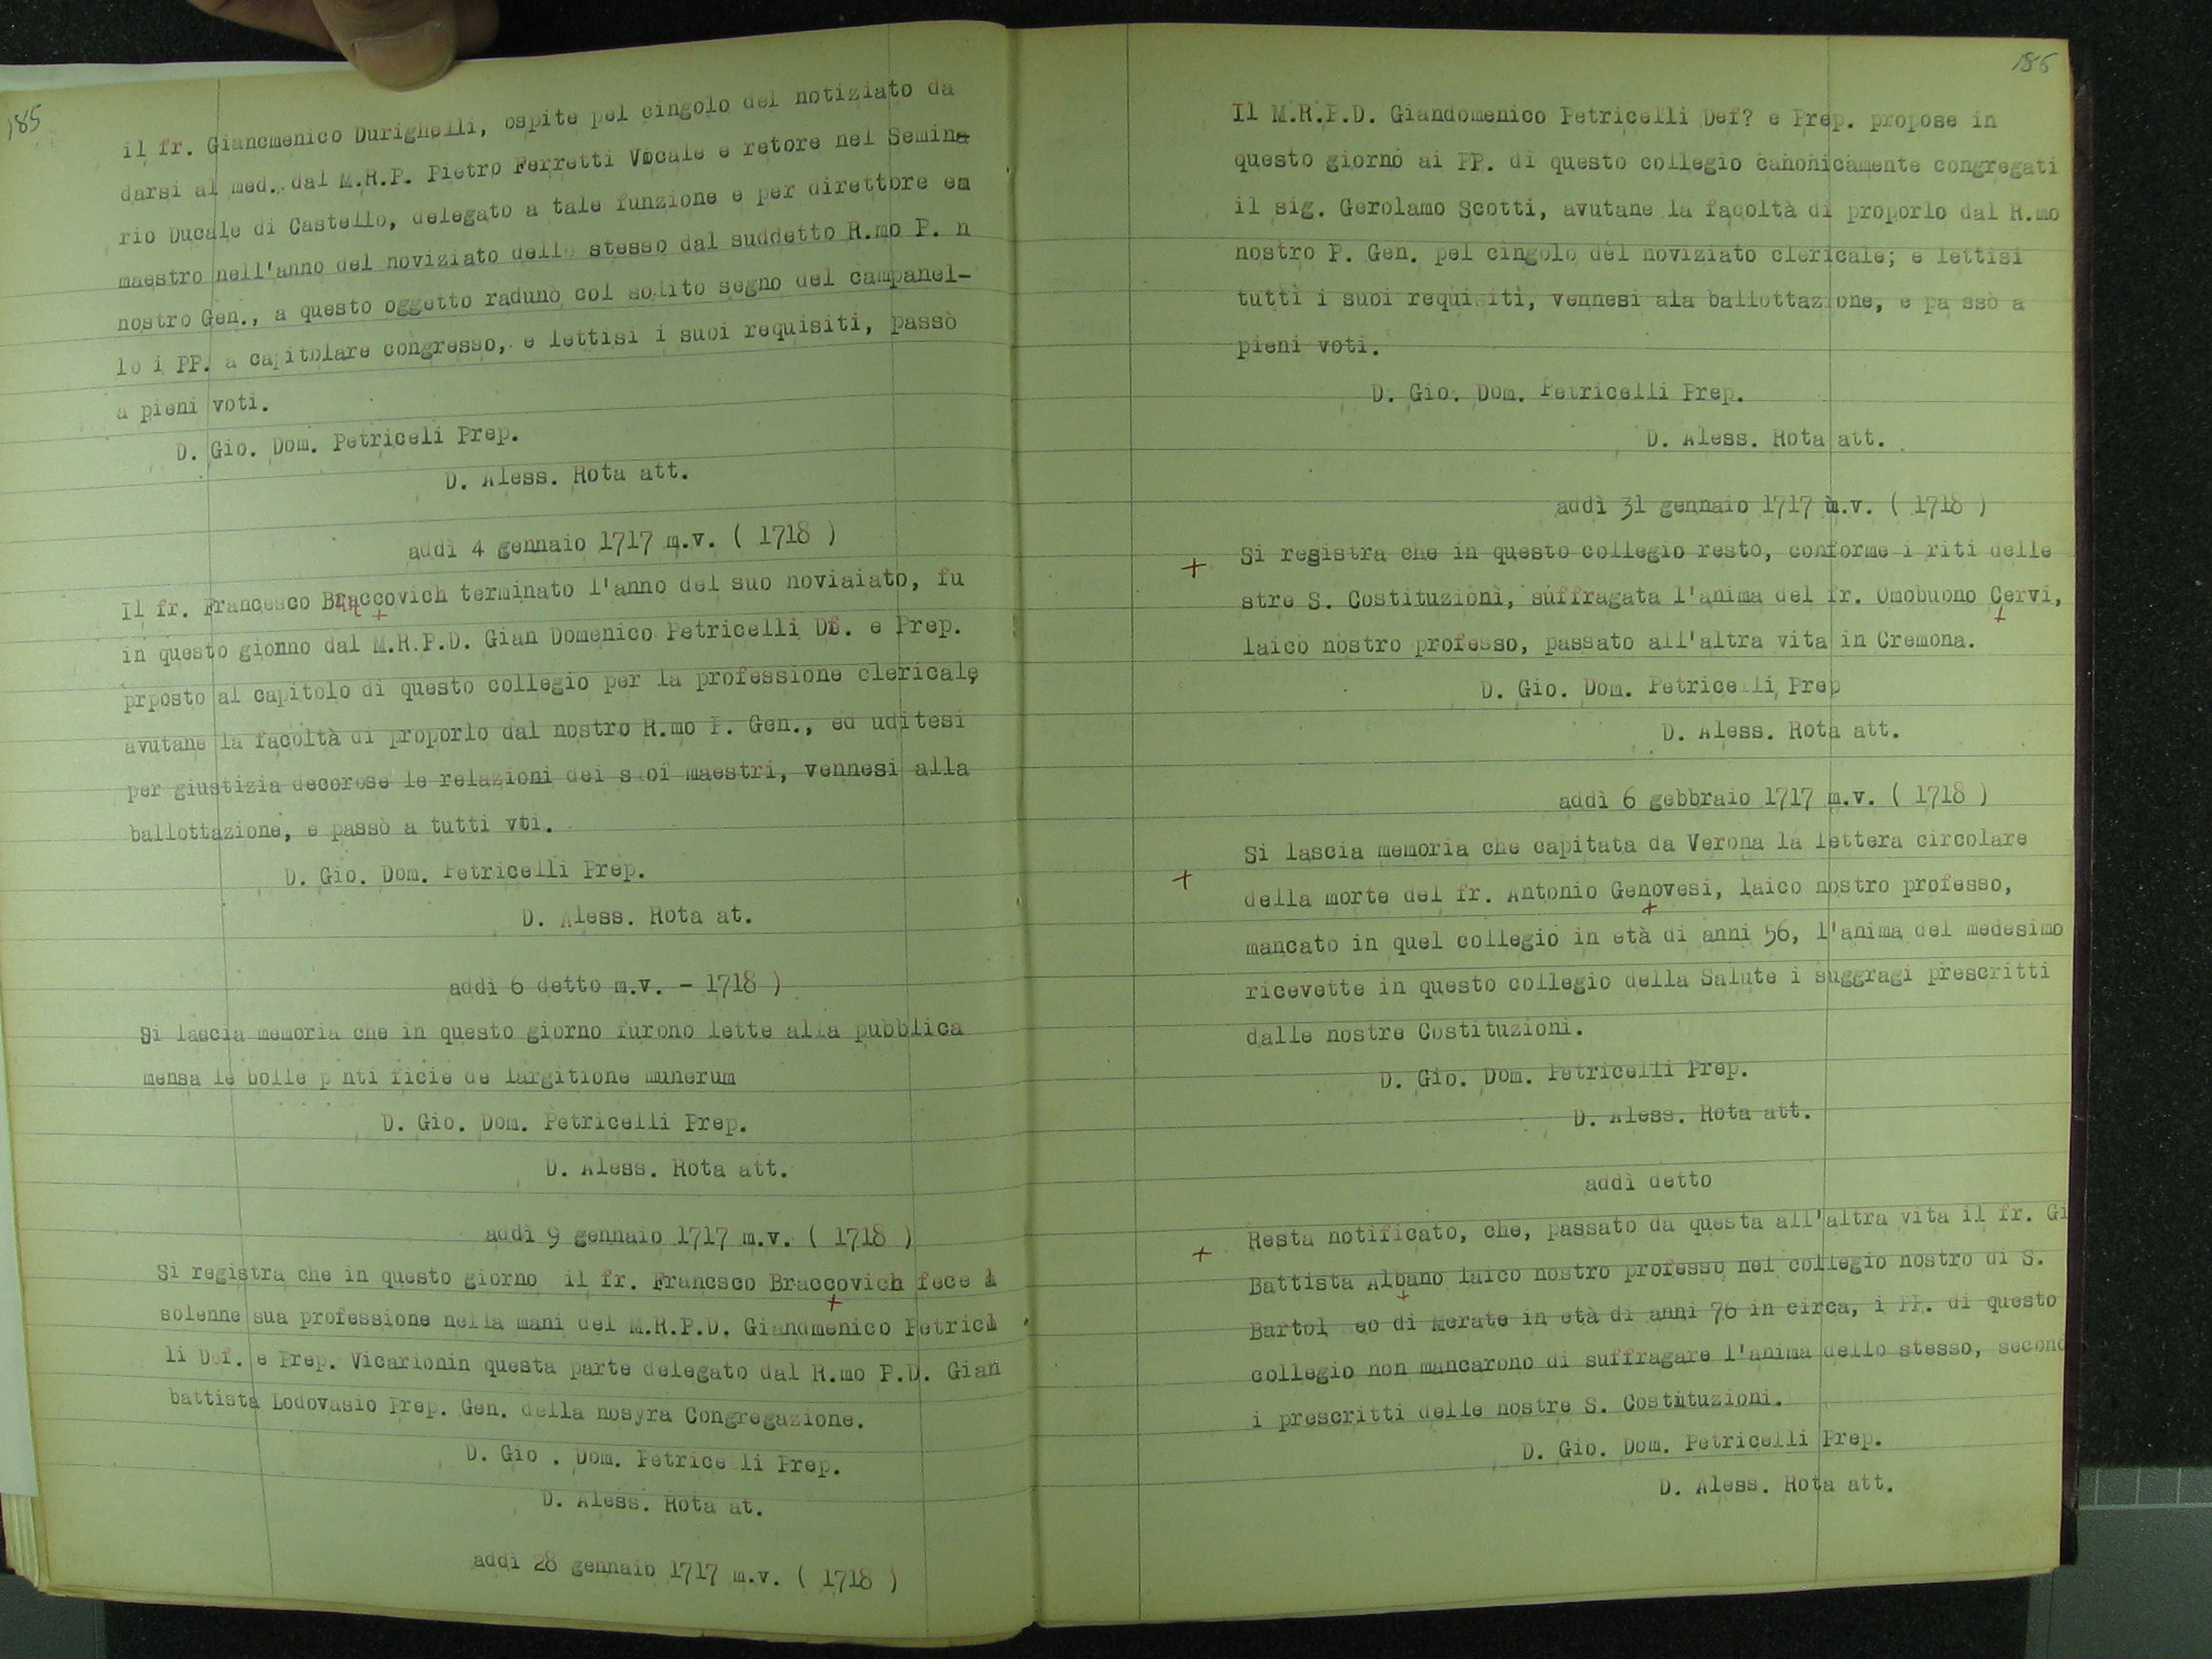 185
il fr. Giancmenico Durighelli, ospite pel cingolo del notiziato da
darsi al med. dal M.R.P. Pietro Ferretti Vocale e retore nel Semina
rio Ducale di Castello, delegato a tale funzione e per direttore e
maestro nell'anno del noviziato dello stesso dal suddetto R.mo P. n
nostro Gen., a questo oggetto radunò col solito segno del campanel-
lo i PP. a capitolare congresso, e lettisi i suoi requisiti, passò
a pieni voti.
D. Gio. Dom. Petriceli Prep.
D. Aless. Rota att.
addì 4 gennaio 1717 m.v. ( 1718 )
Il fr. Francesco Braccovich terminato l'anno del suo noviaiato, fu
in questo gionno dal M.R.P.D. Gian Domenico Petricelli Df. e Prep.
prposto al capitolo di questo collegio per la professione clericale,
avutane la facoltà di proporlo dal nostro R.mo P. Gen., ed uditesi
per giustizia decorose le relazioni dei suoi maestri, vennesi alla
ballottazione, e passò a tutti vti.
D. Gio. Dom. Petricelli Prep.
D. Aless. Rota at.
addì 6 detto m.v. - 1718 )
Si lascia memoria che in questo giorno furono lette alla pubblica
mensa le bolle p nti ficie de largitione munerum
D. Gio. Dom. Petricelli Prep.
D. Aless. Rota att.
addì 9 gennaio 1717 m.v. ( 1718 )
Si registra che in questo giorno il fr. Francsco Braccovich fece l
+
solenne sua professione nella mani del M.R.P.D. Giandmenico Petricl
li Def. e Prep. Vicarionin questa parte delegato dal R.mo P.D. Gian
battista Lodovasio Prep. Gen. della nosyra Congregazione.
D. Gio . Dom. Petrice li Prep.
D. Aless. Rota at.
addì 28 gennaio 1717 m.v. ( 1718 )
186
Il M.R.P.D. Giandomenico Petricelli Def? e Prep. propose in
questo giorno ai PP. di questo collegio canonicamente congregati
il sig. Gerolamo Scotti, avutane la facoltà di proporlo dal R.mo
nostro P. Gen. pel cingolo del noviziato clericale; e lettisi
tutti i suoi requisiti, vennesi ala ballottazione, e pa ssò a
pieni voti.
D. Gio. Dom. Petricelli Prep.
D. Aless. Rota att.
addì 31 gennaio 1717 m.v. ( 1718 )
+ Si registra che in questo collegio restò, conforme i riti delle
stre S. Costituzioni, suffragata l'anima del fr. Omobuono Cervi,
+
laico nostro professo, passato all'altra vita in Cremona.
D. Gio. Dom. Petricelli Prep
D. Aless. Rota att.
addì 6 gebbraio 1717 m.v. ( 1718 )
Si lascia memoria che capitata da Verona la lettera circolare
+ della morte del fr. Antonio Genovesi, laico nostro professo,
+
mancato in quel collegio in età di anni 56, l'anima del medesimo
ricevette in questo collegio della Salute i suggragi prescritti
dalle nostre Costituzioni.
D. Gio. Dom. Petricelli Prep.
D. Aless. Rota att.
addì detto
+ Resta notificato, che, passato da questa all'altra vita il fr. Gi
Battista Albano laico nostro professo nel collegio nostro di S.
+
Bartol eo di Merate in età di anni 76 in circa, i PP. di questo
collegio non mancarono di suffragare l'anima dello stesso, second
i prescritti delle nostre S. Costituzioni.
D. Gio. Dom. Petricelli Prep.
D. Aless. Rota att.